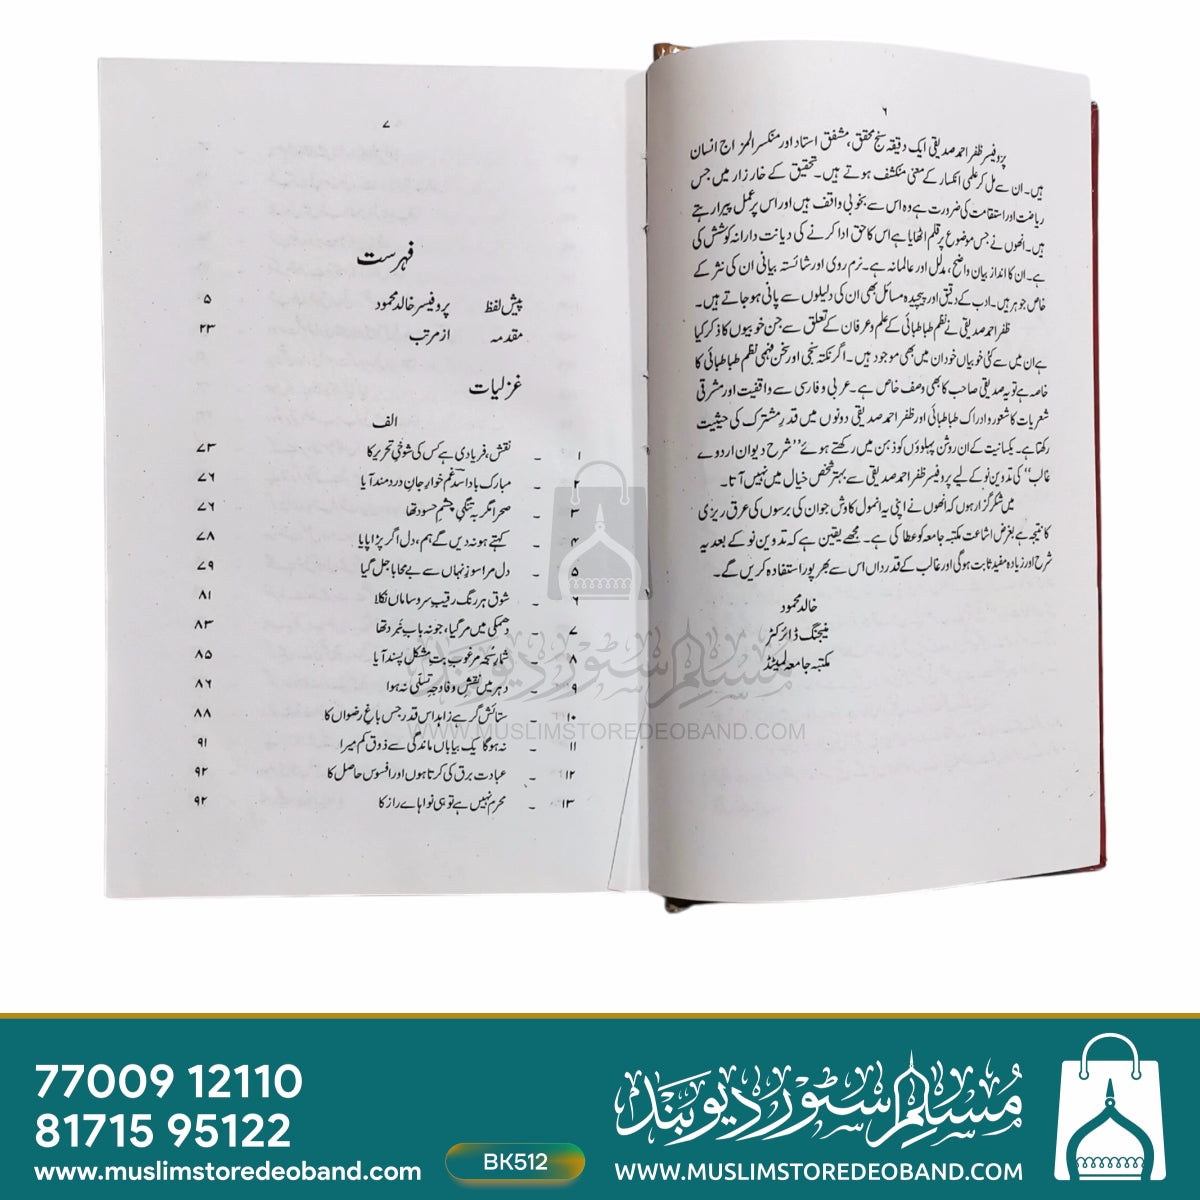 ۶
پروفیسر ظفر احمد صدیقی ایک دقیقہ سنج محقق، مشفق استاد اور منکسر المزاج انسان
ہیں۔ ان سے مل کر علمی انکسار کے معنی منکشف ہوتے ہیں۔ تحقیق کے خارزار میں جس
ریاضت اور استقامت کی ضرورت ہے وہ اس سے بخوبی واقف ہیں اور اس پر عمل پیرا رہتے
ہیں۔ انھوں نے جس موضوع پر قلم اٹھایا ہے اس کا حق ادا کرنے کی دیانت دارانہ کوشش کی
ہے۔ ان کا انداز بیان واضح، مدلل اور عالمانہ ہے۔ نرم روی اور شائستہ بیانی ان کی نثر کے
خاص جوہر ہیں۔ ادب کے دقیق اور پیچیدہ مسائل بھی ان کی دلیلوں سے پانی ہو جاتے ہیں۔
ظفر احمد صدیقی نے نظم طباطبائی کے علم و عرفان کے تعلق سے جن خوبیوں کا ذکر کیا
ہے ان میں سے کئی خوبیاں خود ان میں بھی موجود ہیں۔ اگر نکتہ سنجی اور سخن فہمی نظم طباطبائی کا
خاصہ ہے تو یہ صدیقی صاحب کا بھی وصف خاص ہے۔ عربی و فارسی سے واقفیت اور مشرقی
شعریات کا شعور و ادراک طباطبائی اور ظفر احمد صدیقی دونوں میں قدرِ مشترک کی حیثیت
رکھتا ہے۔ یکسانیت کے ان روشن پہلوؤں کو ذہن میں رکھتے ہوئے "شرح دیوان اردوے
غالب" کی تدوین نو کے لیے پروفیسر ظفر احمد صدیقی سے بہتر شخص خیال میں نہیں آتا۔
میں شکر گزار ہوں کہ انھوں نے اپنی یہ انمول کاوش جو ان کی برسوں کی عرق ریزی
کا نتیجہ ہے بغرض اشاعت مکتبہ جامعہ کو عطا کی ہے۔ مجھے یقین ہے کہ تدوین نو کے بعد یہ
شرح اور زیادہ مفید ثابت ہوگی اور غالب کے قدرداں اس سے بھرپور استفادہ کریں گے۔
خالد محمود
منیجنگ ڈائرکٹر
مکتبہ جامعہ لمیٹڈ
۷
فہرست
پیش لفظ پروفیسر خالد محمود ۵
مقدمہ از مرتب ۲۳
غزلیات
الف
۱ ۔ نقش، فریادی ہے کس کی شوخیِ تحریر کا ۷۳
۲ ۔ مبارک باد اسد غم خوار جانِ دردمند آیا ۷۶
۳ ۔ صحرا مگر بہ تنگیِ چشمِ حسود تھا ۷۶
۴ ۔ کہتے ہو نہ دیں گے ہم، دل اگر پڑا پایا ۷۸
۵ ۔ دل مرا سوزِ نہاں سے بے محابا جل گیا ۷۹
۶ ۔ شوق ہر رنگ رقیبِ سروساماں نکلا ۸۱
۷ ۔ دھمکی میں مر گیا، جو نہ بابِ نبرد تھا ۸۳
۸ ۔ شمار سبحہ مرغوبِ بتِ مشکل پسند آیا ۸۵
۹ ۔ دہر میں نقشِ وفا وجہِ تسلّی نہ ہوا ۸۶
۱۰ ۔ ستائش گر ہے زاہد اس قدر جس باغِ رضواں کا ۸۸
۱۱ ۔ نہ ہوگا یک بیاباں ماندگی سے ذوق کم میرا ۹۱
۱۲ ۔ عبادت برق کی کرتا ہوں اور افسوس حاصل کا ۹۲
۱۳ ۔ محرم نہیں ہے تو ہی نواہاے راز کا ۹۲
مسلم سٹور دیوبند
WWW.MUSLIMSTOREDEOBAND.COM
77009 12110
81715 95122
www.muslimstoredeoband.com
BK512
مسلم سٹور دیوبند
WWW.MUSLIMSTOREDEOBAND.COM